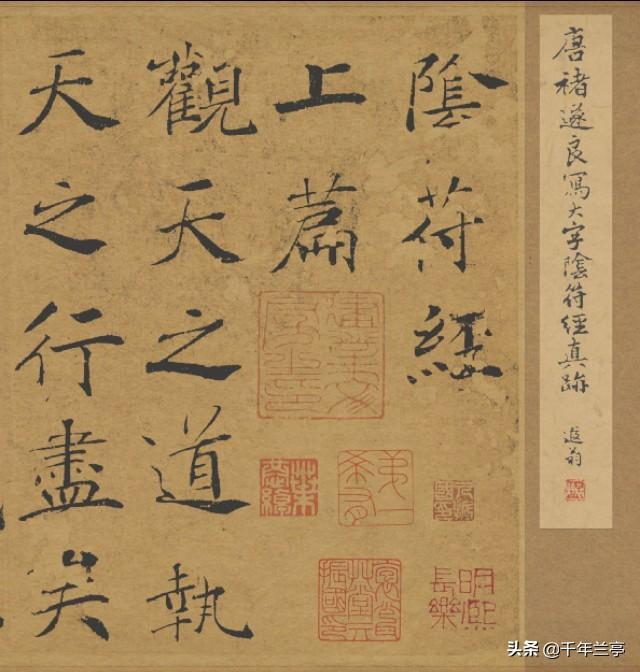 唐褚遂良寫大字陰符經真跡
陰符經
上篇
觀天之道執
天之行盡矣
明熙
長樂
头条 @千年兰亭